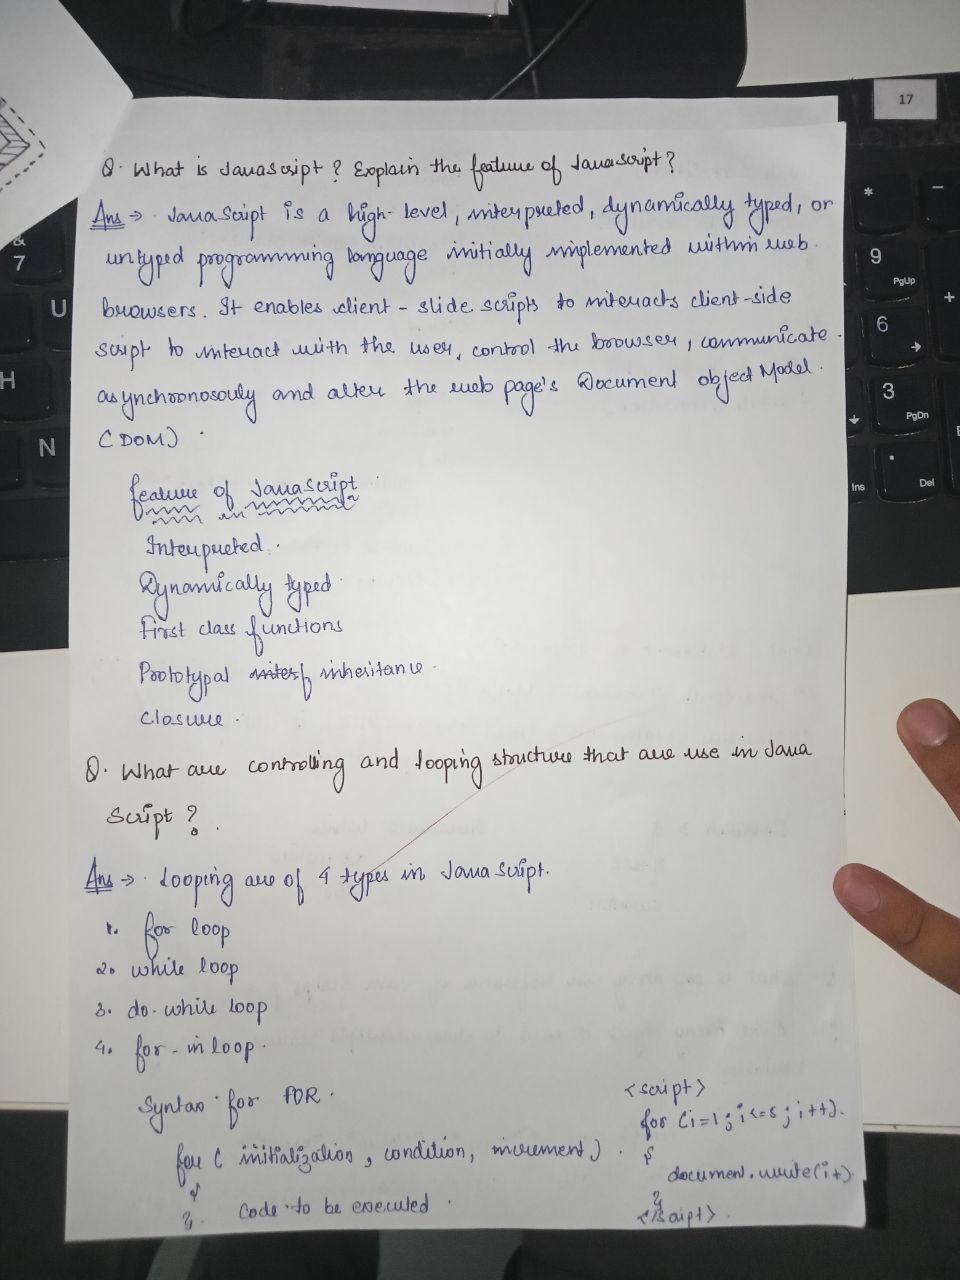 Q. What is Javascript? Explain the feature of Javascript?
Ans → JavaScript is a high-level, interpreted, dynamically typed, or
untyped programming language initially implemented within web
browsers. It enables client-slide scripts to interacts client-side
script to interact with the user, control the browser, communicate
asynchronosouly and alter the web page's Document object Model.
(DOM).
feature of JavaScript
Interpreted.
Dynamically typed
First class functions
Prototypal inheritance.
Closure.
Q. What are controlling and looping structure that are use in Java
Script?
Ans → Looping are of 4 types in JavaScript.
1. for loop
2. while loop
3. do-while loop
4. for-in loop.
Syntax for FOR.
for ( initialization, condition, increment)
{
Code to be executed.
}
<script>
for (i=1; i<=5; i++).
{
document.write(i+)
}
</Script>.
17
&
7
U
H
N
*
-
9
PgUp
+
6
3
PgDn
.
Ins
Del